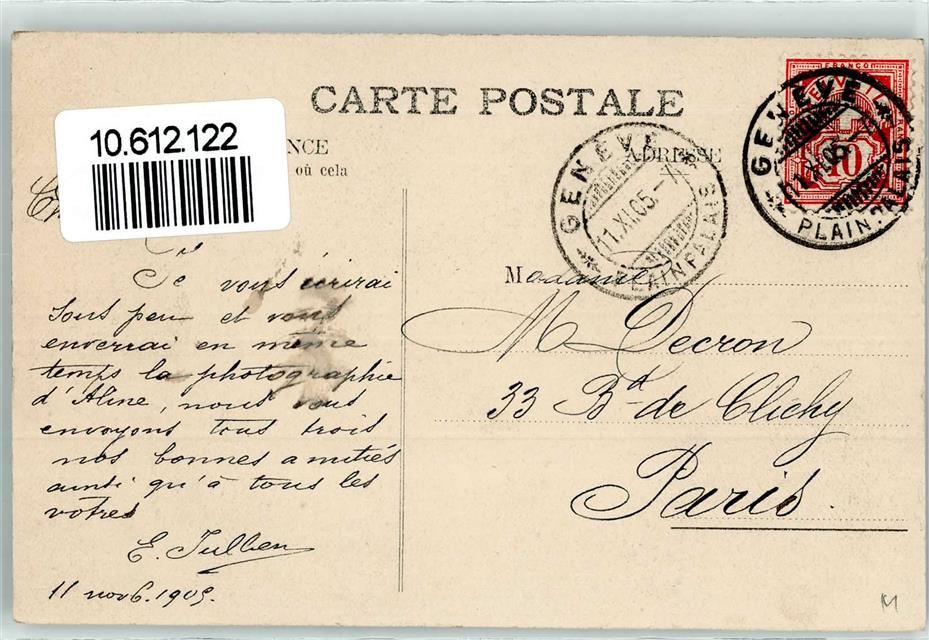 CARTE POSTALE
10.612.122
NCE
où cela
ADRESSE
FRANCO
10
GENÈVE
11.XI.05.
PLAINPALAIS
GENÈVE
11.XI.05.
PLAINPALAIS
Je vous écrirai
sous peu et vous
enverrai en même
temps la photographie
d'Aline, nous vous
envoyons tous trois
nos bonnes amitiés
ainsi qu'à tous les
vôtres
E. Jullien
11 nov6. 1905.
Madame
M Decron
33 Bd de Clichy
Paris